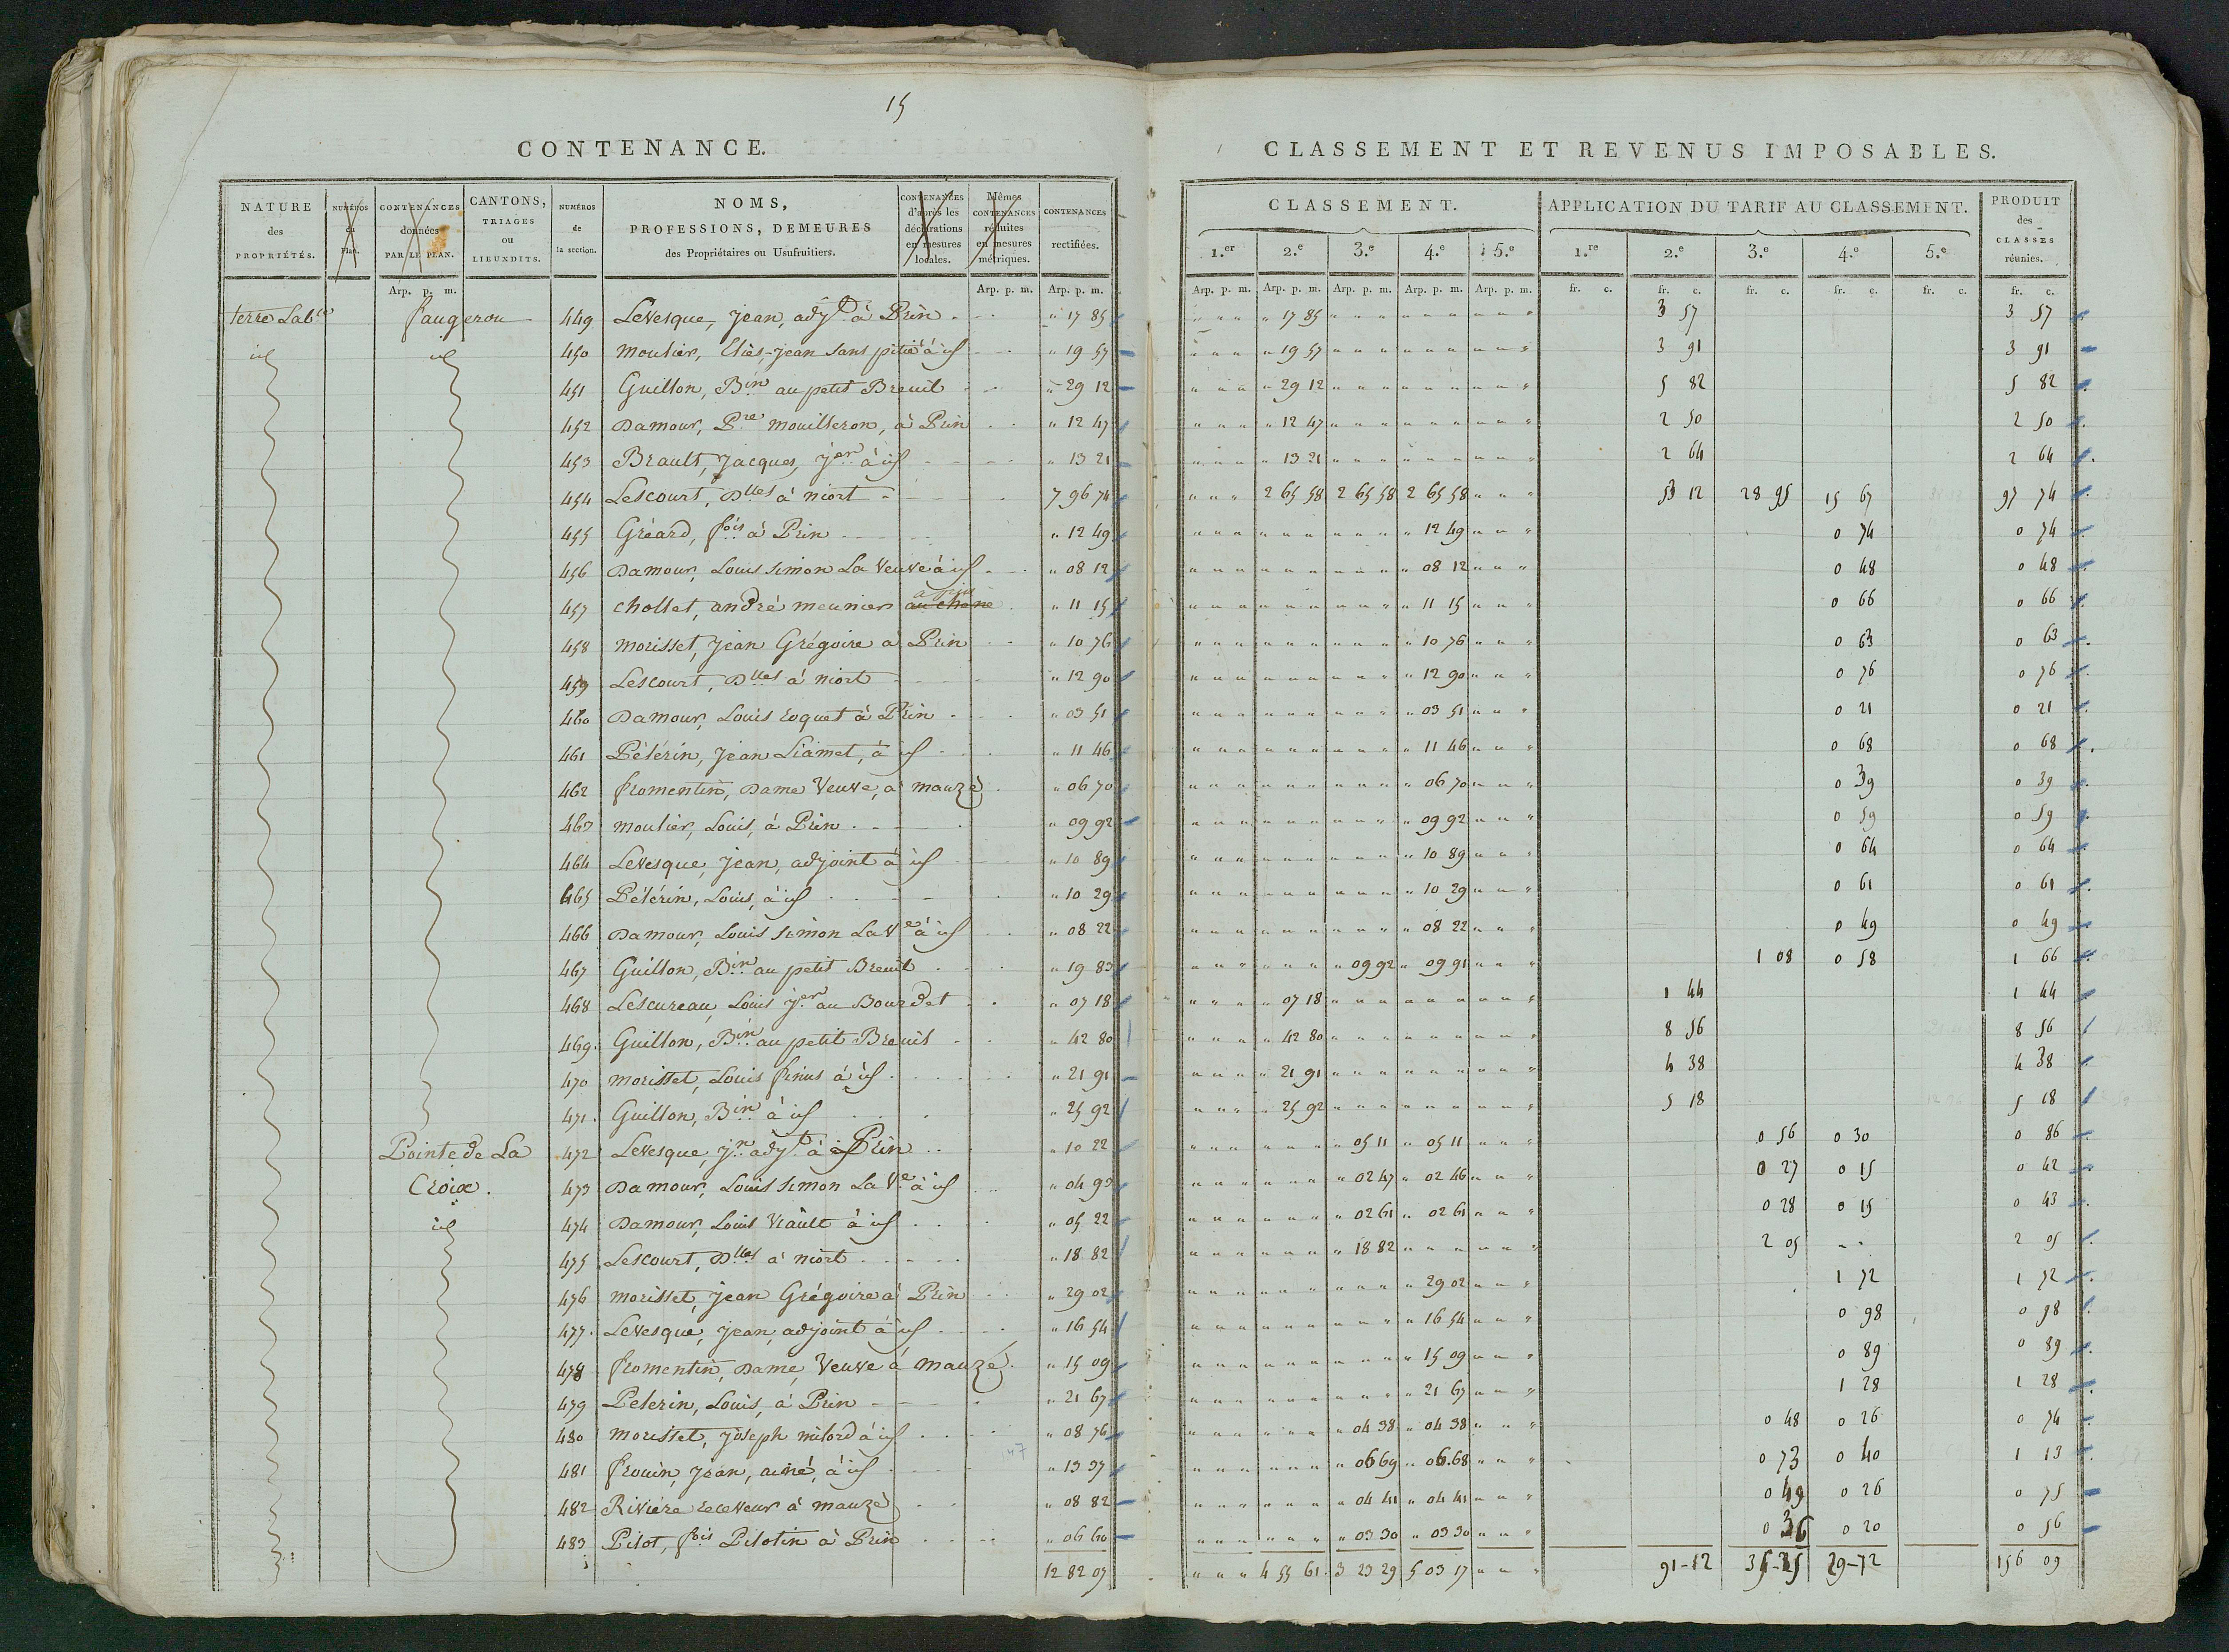 15
CONTENANCE.
NATURE des PROPRIÉTÉS. | NUMÉROS du Plan. | CONTENANCES données PAR LE PLAN. | CANTONS, TRIAGES OU LIEUXDITS. | NUMÉROS de la section. | NOMS, PROFESSIONS, DEMEURES des Propriétaires ou Usufruitiers. | CONTENANCES d'après les déclarations en mesures locales. | Mêmes CONTENANCES réduites en mesures métriques. | CONTENANCES rectifiées.
Arp. p. m. | Arp. p. m. | Arp. p. m.
terre Lable | faugerou | 449 | Levesque, jean, adjt à Prin | " 17 85
id | id | 450 | moulier, Eliès-jean sans pitié à id | " 19 57
451 | Guillon, Bin au petit Breuil | " 29 12
452 | Damour, Pre mouilleron, à Prin | " 12 47
453 | Brault, jacques, jer à id | " 13 21
454 | Lescourt, Dlles à niort | 7 96 74
455 | Gréard, fois à Prin | " 12 49
456 | Damour, Louis simon La veuve à id | " 08 12
457 | chollet, andré meunier au chêne à prin | " 11 15
458 | morisset, jean Grégoire à Prin | " 10 76
459 | Lescourt, Dlles à niort | " 12 90
460 | Damour, Louis roquet à Prin | " 03 51
461 | Pélérin, jean Liamet, à id | " 11 46
462 | fromentin, Dame Veuve, à mauzé | " 06 70
463 | moulier, Louis, à Prin | " 09 92
464 | Levesque, jean, adjoint à id | " 10 89
465 | Pélérin, Louis, à id | " 10 29
466 | Damour, Louis simon La Ve à id | " 08 22
467 | Guillon, Bin au petit Breuil | " 19 83
468 | Lescureau, Louis jer au Bourdet | " 07 18
469. | Guillon, Bin au petit Breuil | " 42 80
470 | morisset, Louis finus à id | " 21 91
471. | Guillon, Bin à id | " 25 92
Pointe de La | 472 | Levesque, jn adjt à id Prin | " 10 22
Croix. | 473 | Damour, Louis simon La Ve à id | " 04 93
id | 474 | Damour, Louis Viault à id | " 05 22
475 | Lescourt, Dlles à niort | " 18 82
476 | morisset, jean Grégoire à Prin | " 29 02
477. | Levesque, jean, adjoint à id | " 16 54
478 | fromentin, Dame, Veuve à mauzé. | " 15 09
479 | Pelerin, Louis, à Prin | " 21 67
480 | morisset, joseph milord à id | " 08 76
481 | frouin, jean, ainé, à id | " 13 37
482 | Rivière receveur à mauzé | " 08 82
483 | Pilot, fois Pilotin à Prin | " 06 60
12 82 07
CLASSEMENT ET REVENUS IMPOSABLES.
CLASSEMENT. | APPLICATION DU TARIF AU CLASSEMENT. | PRODUIT des CLASSES réunies.
1.er | 2.e | 3.e | 4.e | 5.e | 1.re | 2.e | 3.e | 4.e | 5.e
Arp. p. m. | Arp. p. m. | Arp. p. m. | Arp. p. m. | Arp. p. m. | fr. c. | fr. c. | fr. c. | fr. c. | fr. c. | fr. c.
" 17 85 | 3 57 | 3 57
" 19 57 | 3 91 | 3 91
" 29 12 | 5 82 | 5 82
" 12 47 | 2 50 | 2 50
" 13 21 | 2 64 | 2 64
2 65 58 | 2 65 58 | 2 65 58 | 53 12 | 28 95 | 15 67 | 97 74
" 12 49 | 0 74 | 0 74
" 08 12 | 0 48 | 0 48
" 11 15 | 0 66 | 0 66
" 10 76 | 0 63 | 0 63
" 12 90 | 0 76 | 0 76
" 03 51 | 0 21 | 0 21
" 11 46 | 0 68 | 0 68
" 06 70 | 0 39 | 0 39
" 09 92 | 0 59 | 0 59
" 10 89 | 0 64 | 0 64
" 10 29 | 0 61 | 0 61
" 08 22 | 0 49 | 0 49
" 09 92 | " 09 91 | 1 08 | 0 58 | 1 66
" 07 18 | 1 44 | 1 44
" 42 80 | 8 56 | 8 56
" 21 91 | 4 38 | 4 38
" 25 92 | 5 18 | 5 18
" 05 11 | " 05 11 | 0 56 | 0 30 | 0 86
" 02 47 | " 02 46 | 0 27 | 0 15 | 0 42
" 02 61 | " 02 61 | 0 28 | 0 15 | 0 43
" 18 82 | 2 05 | 2 05
" 29 02 | 1 72 | 1 72
" 16 54 | 0 98 | 0 98
" 15 09 | 0 89 | 0 89
" 21 67 | 1 28 | 1 28
" 04 38 | " 04 38 | 0 48 | 0 26 | 0 74
" 06 69 | " 06.68 | 0 73 | 0 40 | 1 13
" 04 41 | " 04 41 | 0 49 | 0 26 | 0 75
" 03 30 | " 03 30 | 0 36 | 0 20 | 0 56
4 55 61 | 3 23 29 | 5 03 17 | 91-12 | 35-25 | 29-72 | 156 09